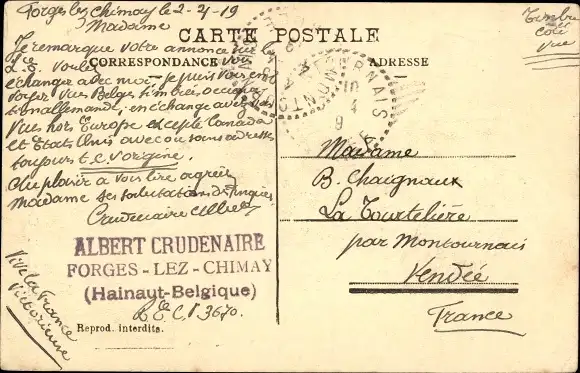 Forges lez Chimay le 2-4-19
Madame
Je remarque votre annonce sur le
L.E. voulez vous
échanger avec moi, je puis vous en
voyer vue Belges timbrées, occupa
tion allemande, en échange avec des
vues hors Europe excepté Canada
et Etats Unis avec ou sans adresses
toujours t.c.v. origine.
Au plaisir à vous lire agréez
Madame ses salutations distinguées
Crudenaire Albert
ALBERT CRUDENAIRE
FORGES-LEZ-CHIMAY
(Hainaut-Belgique)
L.E.C. 3670.
Vive la France
Victorieuse
Reprod. interdits.
CARTE POSTALE
CORRESPONDANCE
ADRESSE
Timbre
et
côté
vue
MONTOURNAIS
10
4
Madame
B. Chaignaux
La Tourtelière
par Montournais
Vendée
France